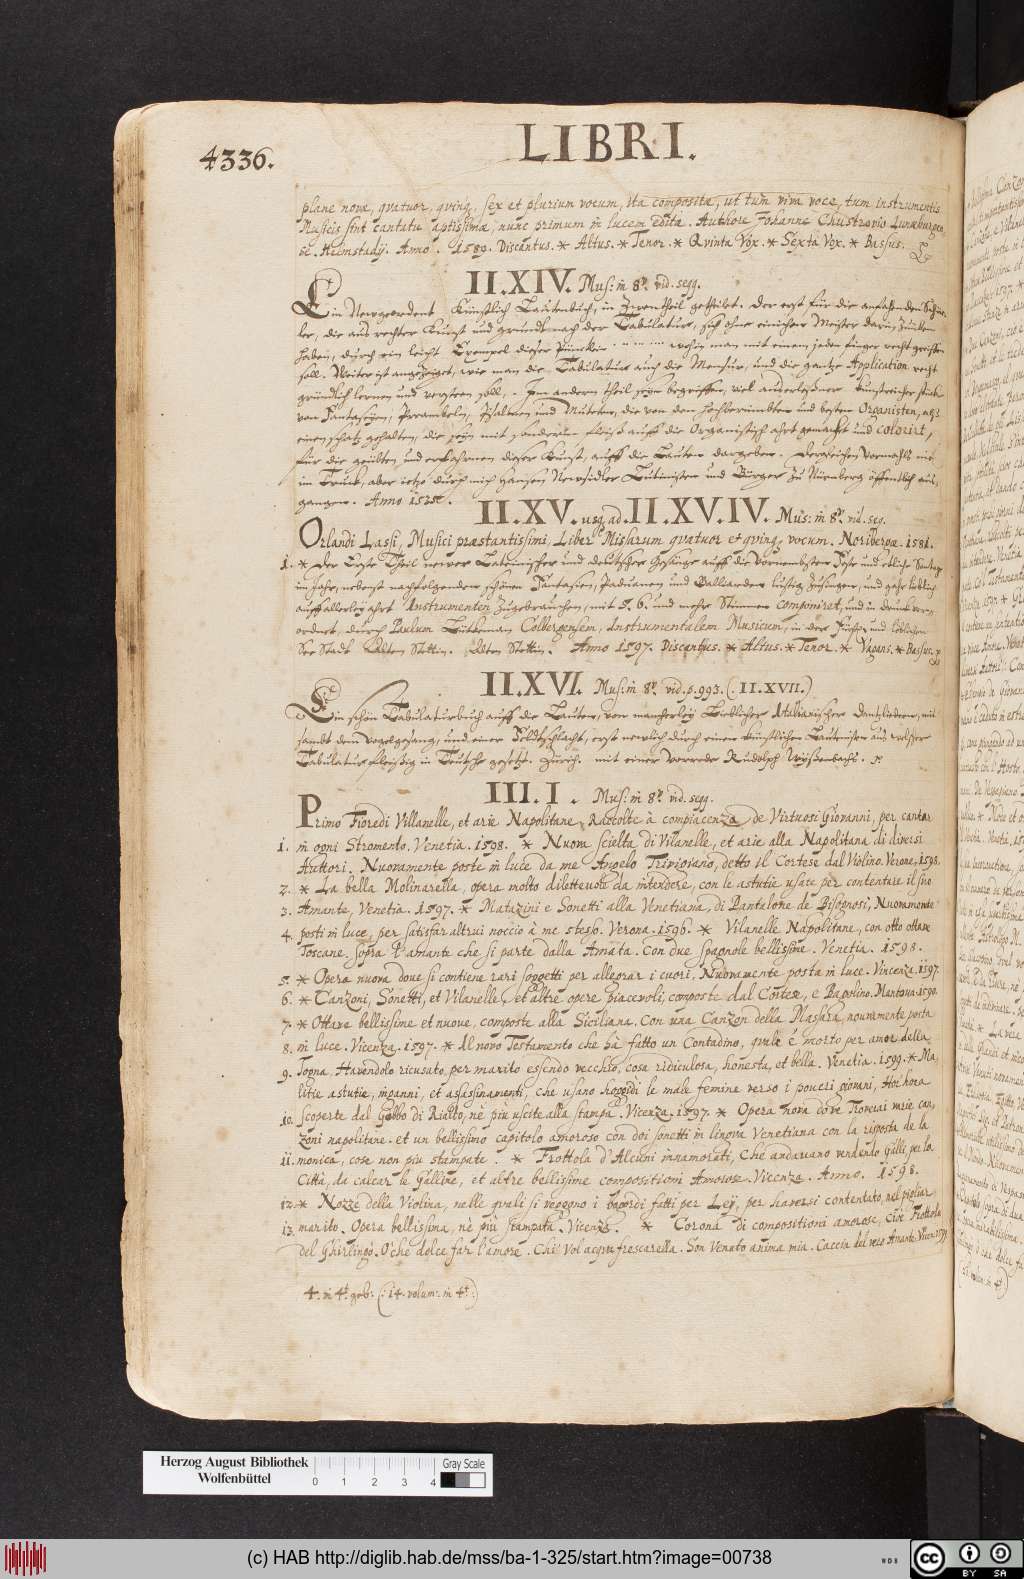 LIBRI.
4336.
plane novæ, qvatuor, qvinq, sex et plurium vocum, ita compositæ, ut tùm vivâ voce, tum instrumentis
Musicis sint cantatu aptissimæ, nunc primùm in lucem editæ. Authore Johanne Chustrovio Luneburgen-
se. Helmstadij. Anno. 1589. Discantus. * Altus. * Tenor. * Qvinta Vox. * Sexta Vox. * Bassus.
II.XIV. Mus: in 8º. vid. seqq.
Ein Newgeordent Künstlich Lautenbuch, in Zwen theil getheilet. Der erst für die anfahenden Schü-
ler, die aus rechter Kunst und grundt nach der Tabulatur, sich ohne einichen Meister darin zuüben
haben, durch ein leicht Exempel dieser Pünctlein . .. ... .... wohin man mit einem jeden finger recht greiffen
soll. Weiter ist angezeiget, wie man die Tabulatur auch die Mensur, und die gantze Application recht
gründlich lernen und versteen soll. Im andern theil sein begriffen, viel außerlesner kunstreicher stuck
von Fantaseyen, Preambeln, Psalmen und Muteten, die von den Hochberümbten und besten Organisten, als
einen schatz gehalten, die sein mit sonderm fleiß auff die Organistisch ahrt gemacht und colorirt,
für die geübten und erfahrnen dieser Kunst, auff die Lauten dargeben. Dergleichen vormahls nie
im Truck, aber ietzo durch mich Hansen Newsidler Lutinisten und Bürger zu Nürnberg öffentlich auß-
gangen. Anno
II.XV. usq. ad. II.XV.IV. Mus: in 8º. vid. seq.
Orlandi Lassi, Musici præstantissimi, Liber Missarum qvatuor et qvinq, vocum. Noribergæ. 1581.
1. * Der Erste Theil newer Lateinischer und deutscher Gesänge auff die Vornembsten Feste und etliche Sontage
im Jahr, nebenst nachfolgenden schönen Fantasien, Paduanen und Galliarden lustig zusingen, und gahr lieblich
auff allerley ahrt Instrumenten zugebrauchen, mit 5. 6. und mehr Stimmen componiret, und in druck ver-
ordnet, durch Paulum Lütkeman Colbergensem, Instrumentalem Musicum, in der Fürst. und löblichen
See Stadt Alten Stettin. Alten Stettin. Anno 1597. Discantus. * Altus. * Tenor. * Vagans. * Bassus.
II.XVI. Mus: in 8º. vid. p. 993. (. II.XVII.)
Ein schön Tabulaturbuch auff die Lauten, von mancherley Lieblicher Italianischer Dantzliedern, mit
sambt dem Vogelgesang, und einer Feldtschlacht, erst newlich durch einen künstlichen Lautenisten aus welscher
Tabulatur fleißig in Teutsche gesetzt. Zürich. mit einer Vorrede Rudolph Wyßenbachs.
III.I. Mus: in 8º. vid. seqq.
Primo Fiore di Villanelle, et arie Napolitane, Racolte à compiacenza de Virtuosi Giovanni, per cantar
1. in ogni Stromento. Venetia. 1598. * Nuova scielta di Vilanelle, et arie alla Napolitana di diversi
Auttori. Nuovamente poste in luce da me Angelo Trivigiano, detto il Cortese dal Violino. Verone, 1598.
2. * La bella Molinarella, opera molto dilettevole da intendere, con le astutie usate per contentare il suo
3. Amante, Venetia. 1597. * Matazini e Sonetti alla Venetiana, di Pantalone de Bisognosi, Nuovamente
4. posti in luce, per satisfar altrui noccio à me stesso. Verona. 1596. * Vilanelle Napolitane, con otto ottave
Toscane. sopra l'amante che si parte dalla Amata. Con due spagnole bellissime. Venetia. 1598.
5. * Opera nuova dove si contiene rari soggetti per allegrar i cuori. Nuovamente posta in luce. Vincenza. 1597.
6. * Canzoni, Sonetti, et Vilanelle, et altre opere piacevoli, composte dal Cortese, e Bapolino. Mantova. 1590.
7. * Ottave bellissime et nuove, composte alla Siciliana. Con una Canzon della Masara, nouvmente posta
8. in luce. Vicenza. 1597. * Il novo Testamento che hà fatto un Contadino, quale è morto per amor della
9. Togna Havendolo ricusato per marito essendo vecchio, cosa ridiculosa, honesta, et bella. Venetia. 1599. * Ma-
litie astutie, inganni, et asassinamenti, che usano hoggidi le male femine verso i poveri giovani, Hor hora
10. scoperte dal Gobbo di Rialto, nè piu uscite alla stampa. Vicenza. 1597. * Opera nova dove Troverai varie can-
zoni napolitane. et un bellissimo capitolo amoroso con doi sonetti in lingva Venetiana con la risposta de la
11. monica, cose non piu stampate. * Frottola d'Alcuni innamorati, Che andavano vendendo Galli, per la
Città, da calcar le Galline, et altre bellissime compositioni Amorose. Vicenza. Anno. 1598.
12. * Nozze della Violina, nelle quali si veggono i bagordi fatti per Ley, per haversi contentato, nel pigliar
13. marito. Opera bellissima, nè piu stampata. Vicenza. * Corona di compositioni amorose, Cioè Frottola
del Ghirlingò. O'che dolce far l'amore. Chi Vol acqua frescarella. Son Venuto anima mia. Caccia del vero Amante.
4. in 4º. geb: (: 14. volum: in 4º:)
Herzog August Bibliothek
Wolfenbüttel
0 1 2 3 4
Gray Scale
(c) HAB http://diglib.hab.de/mss/ba-1-325/start.htm?image=00738
WDB
cc BY SA